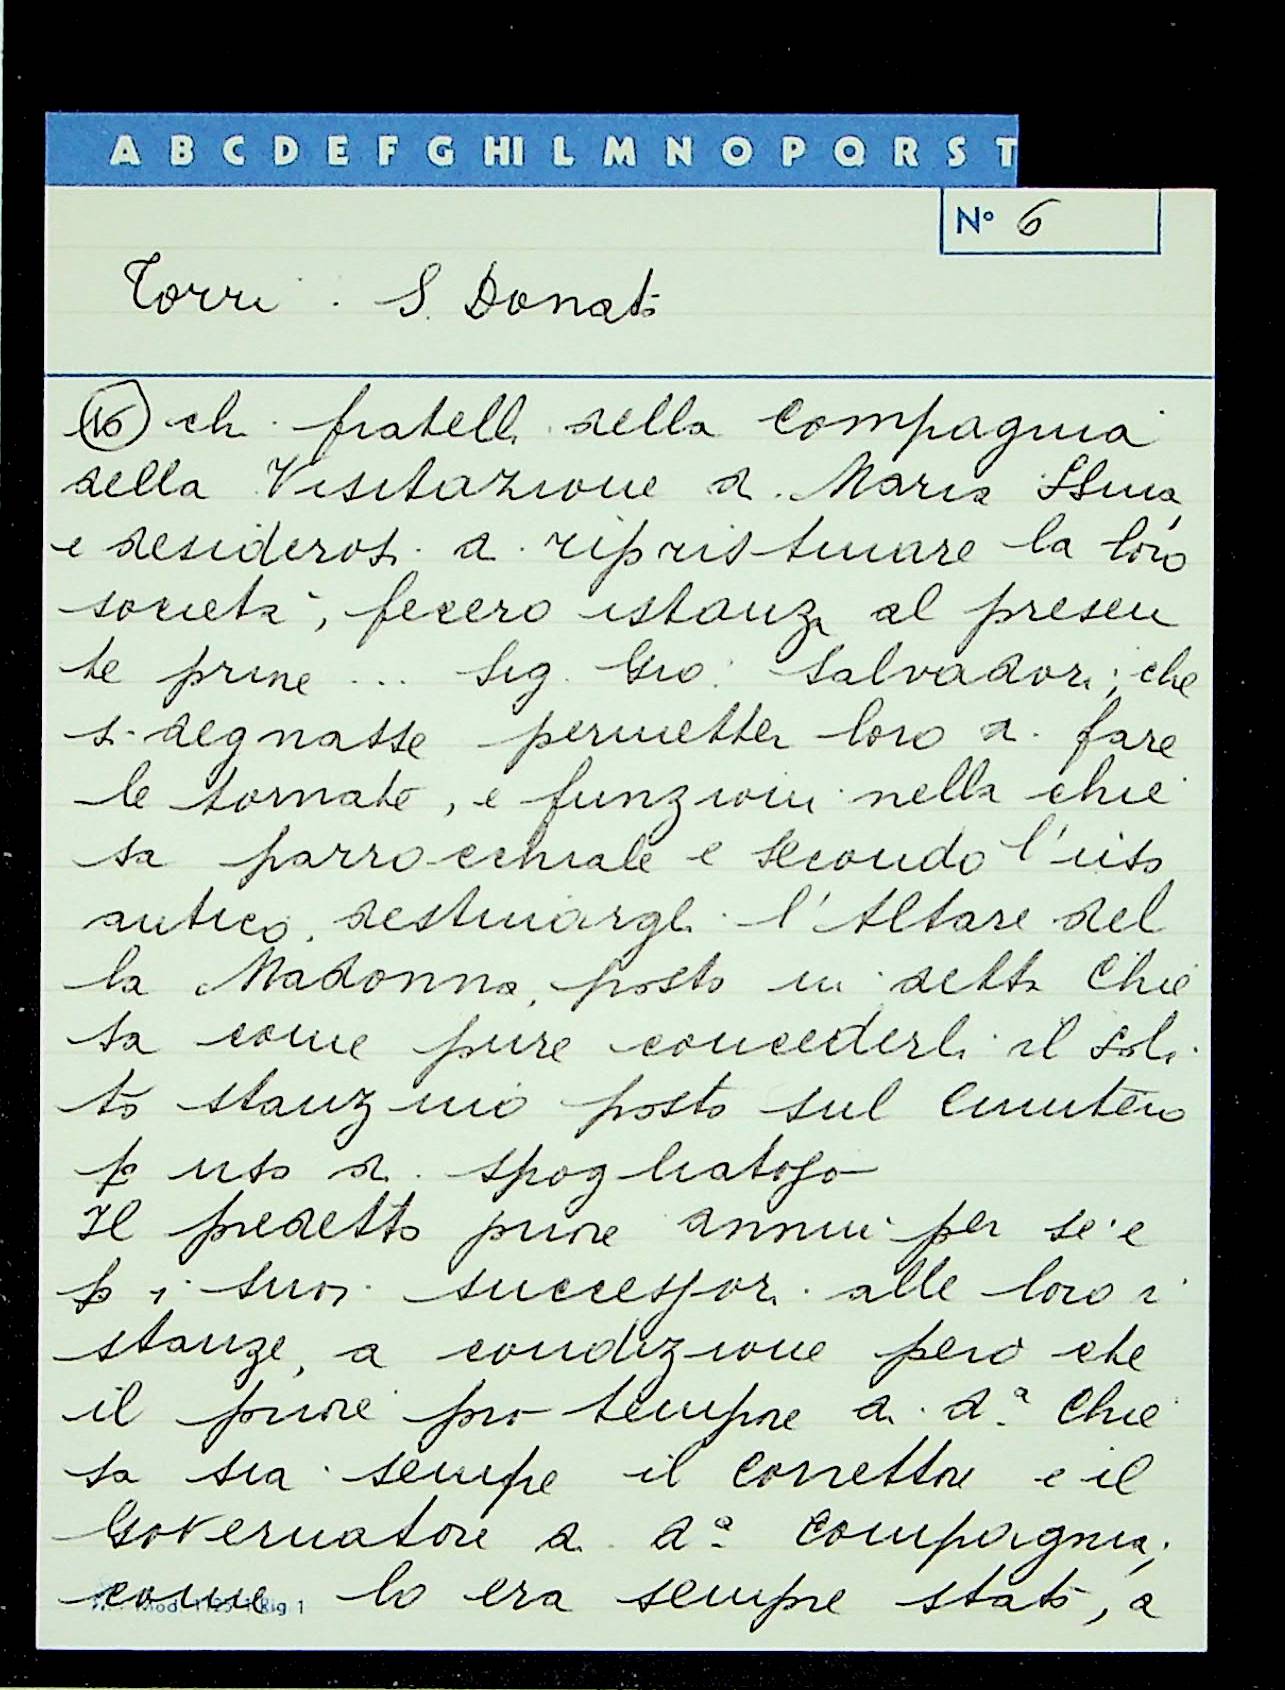 A B C D E F G HI L M N O P Q R S T
N° 6
Torri . S. Donato
16 chi fratelli della Compagnia
della Visitazione di Maria SSma,
e desiderosi di ripristinare la loro
società, fecero istanza al presen
te priore ... Sig. Gio: Salvadori; che
si degnasse permetter loro di fare
le tornate, e funzioni nella chie
sa parrocchiale e secondo l'uso
antico, destinargli l'Altare del
la Madonna, posto in detta Chie
sa come pure concederli il soli
to stanzino posto sul Cimitero
p uso di spogliatojo
Il predetto priore annui per se e
p i suoi successori alle loro i
stanze, a condizione però che
il priore pro tempore di d.ª Chie
sa sia sempre il Correttore e il
Governatore di d.ª Compagnia;
come lo era sempre stato, a
Mod. 1125 Rig 1